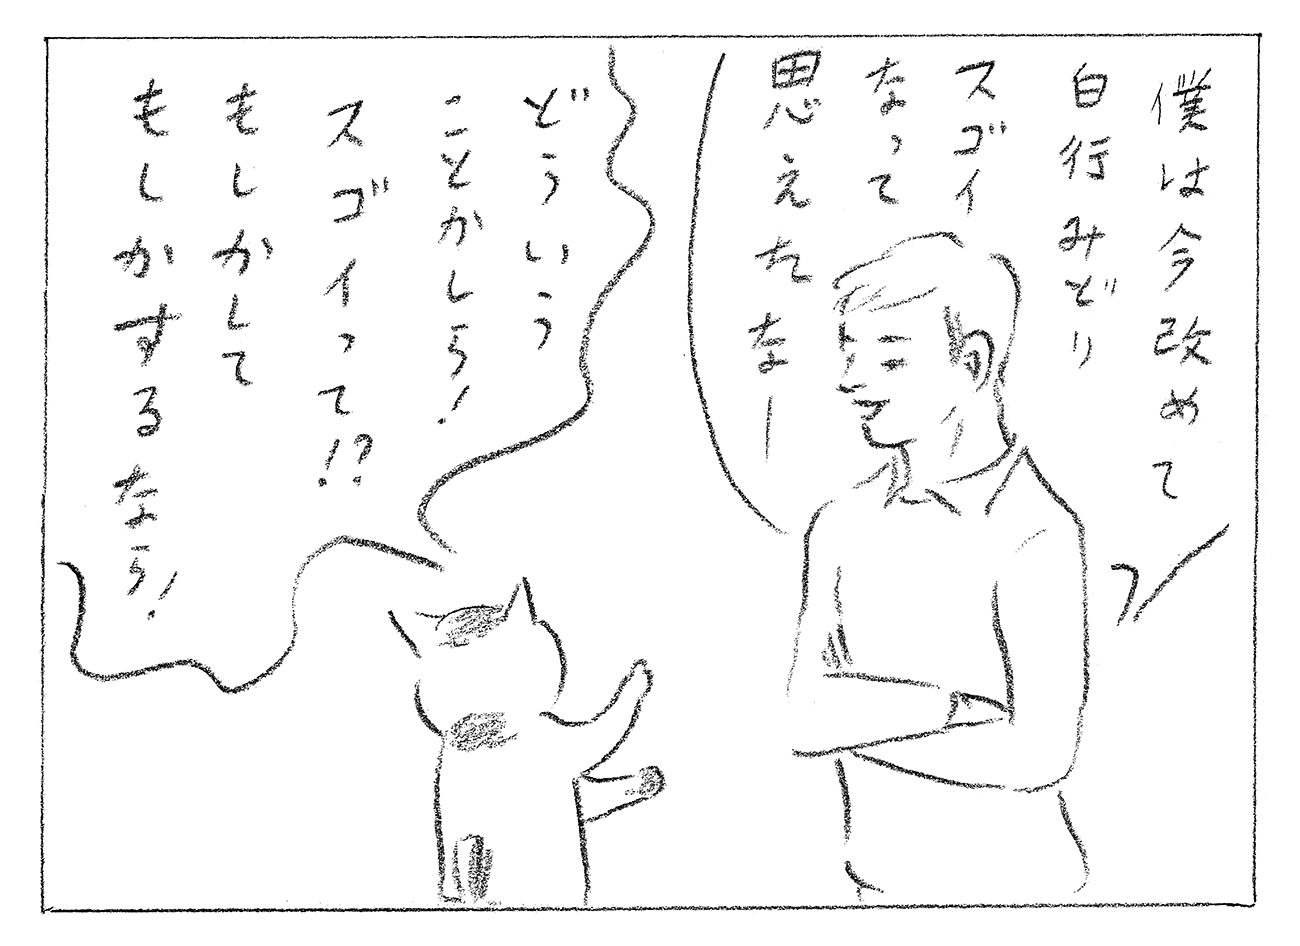 僕は今改めて
自行みどり
スゴイ
なって
思えたなー
どういう
ことかしら!
スゴイって!?
もしかして
もしかするなら!